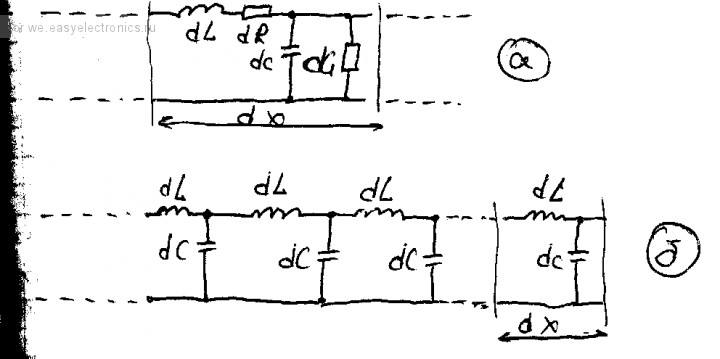 for we.easyelectronics.ru
dL dR
dC dG
а
dx
dL dL dL dL
dC dC dC dC
б
dx